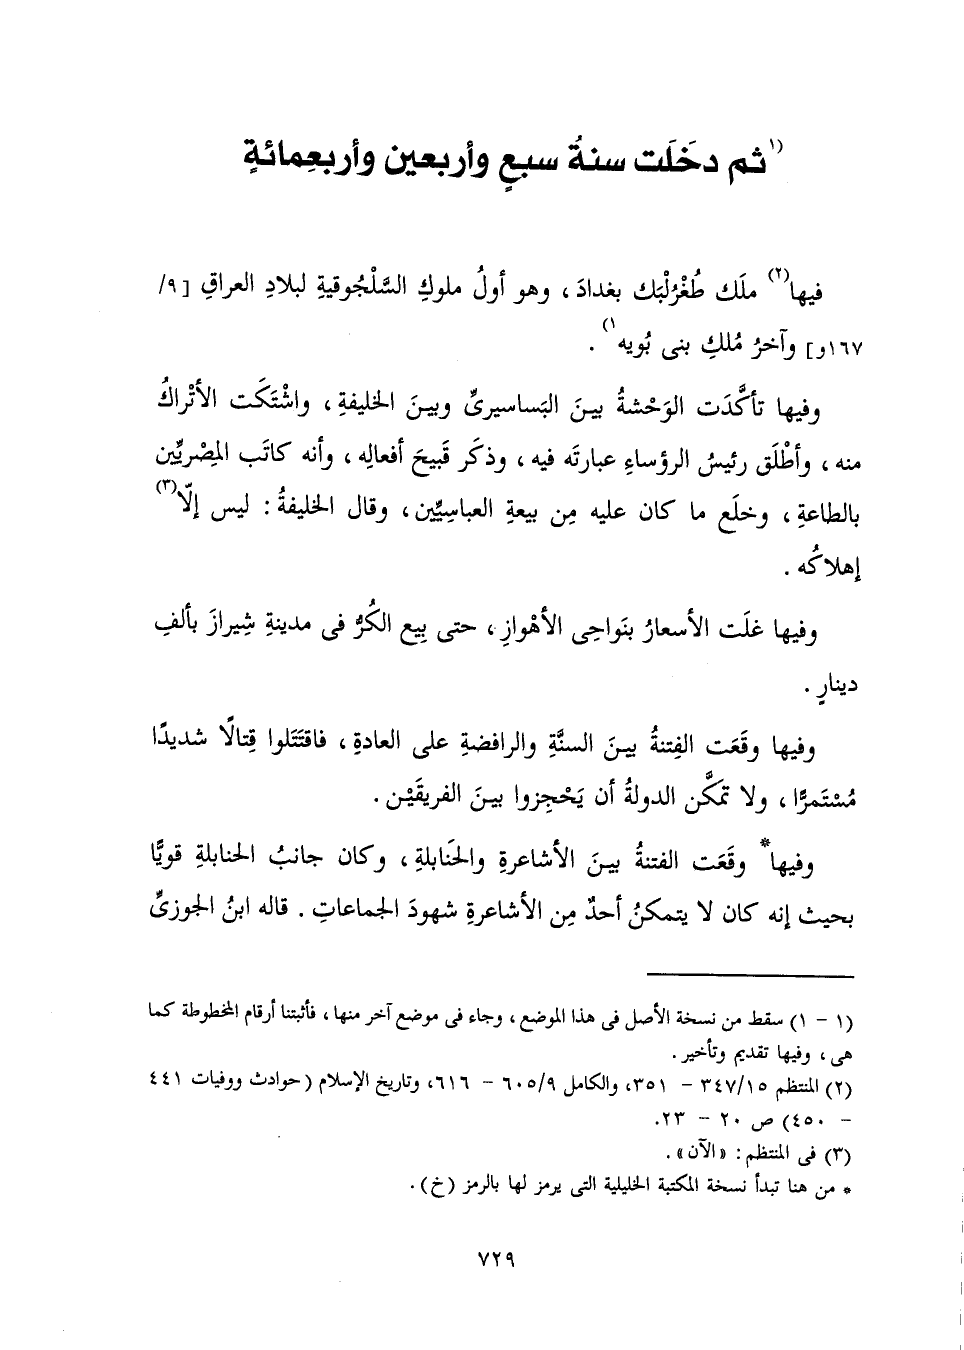 ⁽¹ثم دخَلَت سنةُ سبعٍ وأربعين وأربعِمائةٍ
فيها⁽²⁾ ملَك طُغْرُلْبَك بغدادَ ، وهو أولُ ملوكِ السَّلْجُوقيةِ لبلادِ العراقِ [ ٩/
١٦٧و ] وآخرُ مُلكِ بنى بُويه¹⁾ .
وفيها تأكَّدَت الوَحْشةُ بينَ البَساسيرىِّ وبينَ الخليفةِ ، واشْتَكَت الأتْراكُ
منه ، وأطْلَق رئيسُ الرؤساءِ عبارتَه فيه ، وذكَر قَبيحَ أفعالِه ، وأنه كاتَب المِصْريِّين
بالطاعةِ ، وخلَع ما كان عليه مِن بيعةِ العباسِيِّين ، وقال الخليفةُ : ليس إلّا⁽³⁾
إهلاكُه .
وفيها غلَت الأسعارُ بنَواحِى الأهْوازِ ، حتى بِيع الكُرُّ فى مدينةِ شِيرازَ بألفِ
دينارٍ .
وفيها وقَعَت الفِتنةُ بينَ السنَّةِ والرافضةِ على العادةِ ، فاقتَتَلوا قِتالًا شديدًا
مُسْتَمرًّا ، ولا تمَكَّن الدولةُ أن يَحْجِزوا بينَ الفريقَيْن .
وفيها* وقَعَت الفتنةُ بينَ الأشاعرةِ والحَنابلةِ ، وكان جانبُ الحنابلةِ قويًّا
بحيث إنه كان لا يتمكنُ أحدٌ مِن الأشاعرةِ شهودَ الجماعاتِ . قاله ابنُ الجوزىِّ
(١ - ١) سقط من نسخة الأصل فى هذا الموضع ، وجاء فى موضع آخر منها ، فأثبتنا أرقام المخطوطة كما
هى ، وفيها تقديم وتأخير .
(٢) المنتظم ٣٤٧/١٥ - ٣٥١، والكامل ٦٠٥/٩ - ٦١٦، وتاريخ الإسلام (حوادث ووفيات ٤٤١
- ٤٥٠) ص ٢٠ - ٢٣.
(٣) فى المنتظم : «الآن» .
* من هنا تبدأ نسخة المكتبة الخليلية التى يرمز لها بالرمز (خ) .
٧٢٩